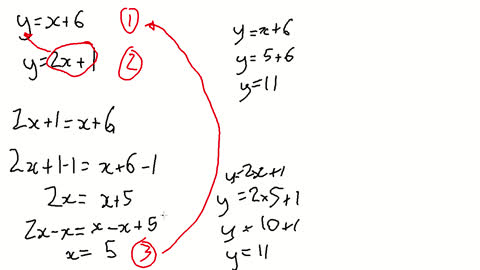 y=x+6 ①
y=2x+1 ②
2x+1=x+6
2x+1-1=x+6-1
2x= x+5
2x-x=x-x+5
x= 5 ③
y=x+6
y=5+6
y=11
y=2x+1
y=2x5+1
y=10+1
y=11